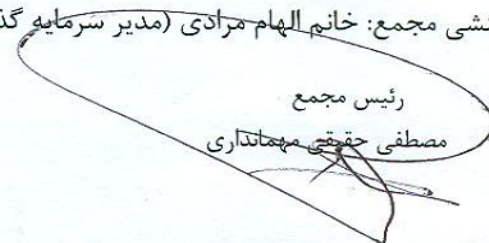 نشی مجمع: خانم الهام مرادی (مدیر سرمایه گذ
رئیس مجمع
مصطفی حقیقی مهمانداری